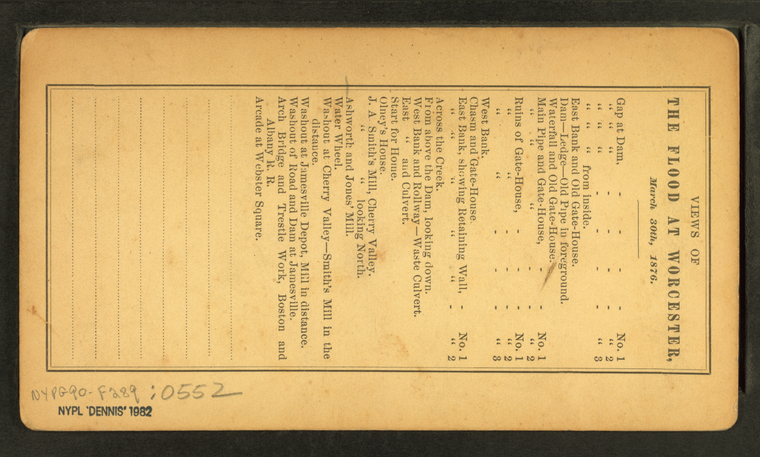 VIEWS OF
THE FLOOD AT WORCESTER,
March 30th, 1876.
Gap at Dam, - - - No. 1
" " - - - " 2
" " - - - " 3
" " from inside.
East Bank and Old Gate-House.
Dam—Ledge—Old Pipe in foreground.
Waterfall and Old Gate-House.
Main Pipe and Gate-House, - No. 1
" " " - " 2
Ruins of Gate-House, - - No. 1
" " - - " 2
" " - - " 3
West Bank.
Chasm and Gate-House.
East Bank, showing Retaining Wall, - No. 1
" " " " " - " 2
Across the Creek.
From above the Dam, looking down.
West Bank and Rollway—Waste Culvert.
East " and Culvert.
Start for Home.
Olney's House.
J. A. Smith's Mill, Cherry Valley.
" " looking North.
Ashworth and Jones' Mill.
Water Wheel.
Washout at Cherry Valley—Smith's Mill in the
distance.
Washout at Jamesville Depot, Mill in distance.
Washout of Road and Dam at Jamesville.
Arch Bridge and Trestle Work, Boston and
Albany R. R.
Arcade at Webster Square.
NYPG90-F289 :0552
NYPL 'DENNIS' 1982